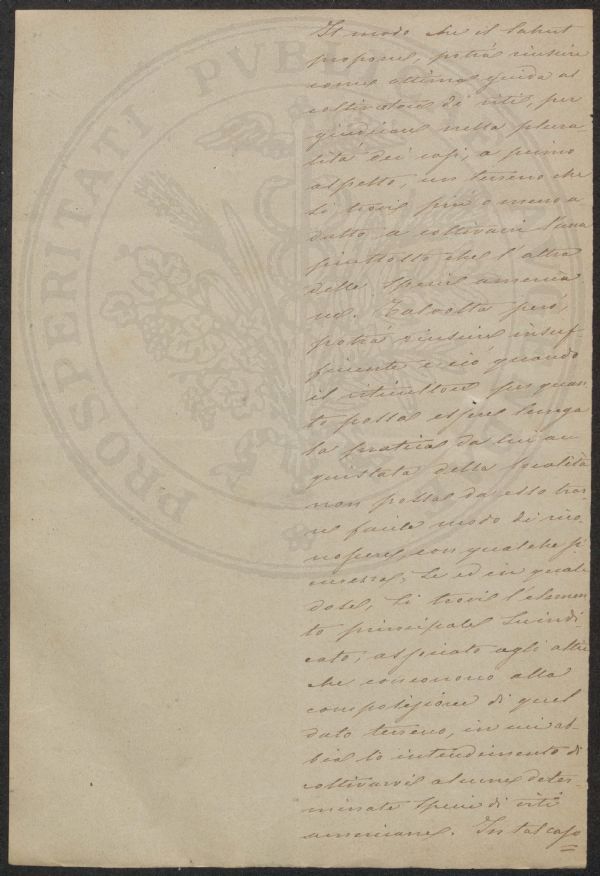 PROSPERITATI PVBLI
Il modo che il Sahut
propone, potrà riuscire
come ottima guida al
coltivatore di viti, per
giudicare nella plura
lità dei casi, a primo
aspetto, un terreno che
si trovi più o meno a
datto a coltivarvi l'una
piuttosto che l'altra
delle specie america
ne. Talvolta però,
potrà riuscire insuf-
ficiente e ciò quando
il viticultore per quan
to possa esser lunga
la pratica da lui ac
quistata della località
non possa da esso trar
re facile modo di rico
noscere, con qualche si
curezza, se ed in quale
dose, si trovi l'elemen
to principale suindi-
cato, associato agli altri
che concorrono alla
composizione di quel
dato terreno, in cui ab-
bia lo intendimento di
coltivarvi alcune deter-
minate specie di viti
americane. In tal caso